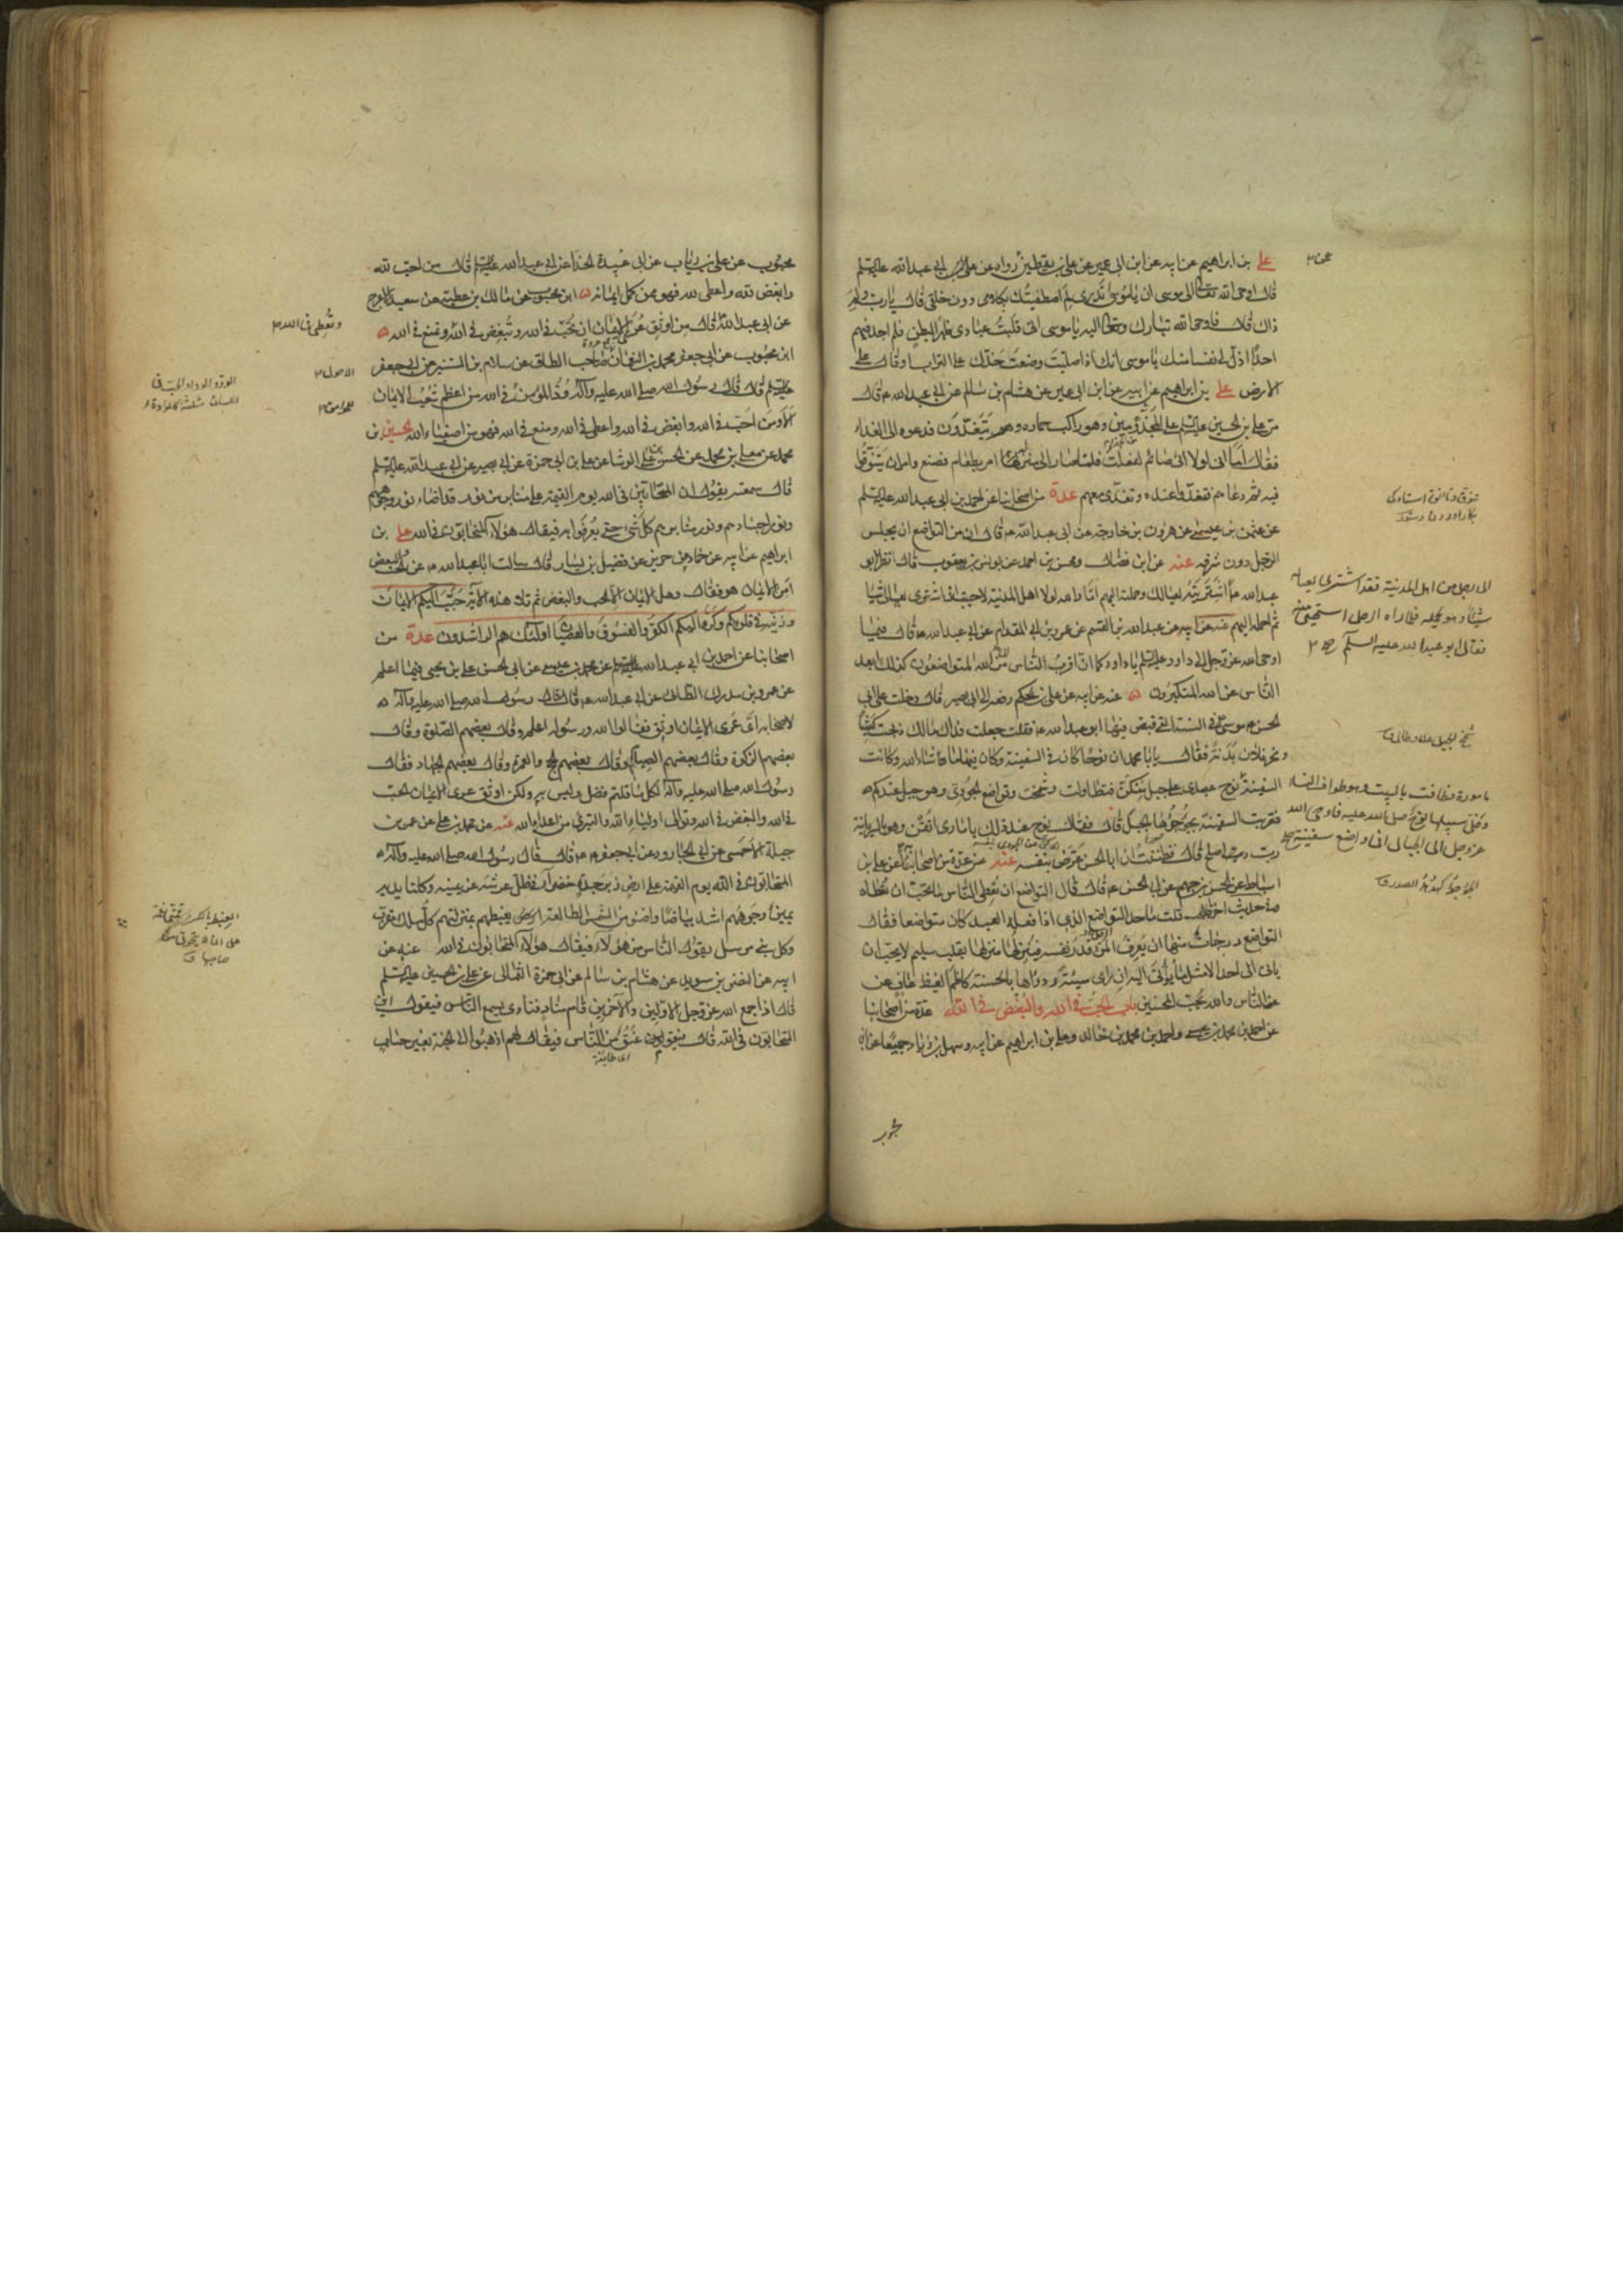 علي بن ابراهيم عن ابيه عن ابن ابي عمير عن علي بن يقطين عمن رواه عن ابي عبد الله عليه السلم
قال اوحى الله تعالى الى موسى ان يا موسى اتدري لم اصطفيتك بكلامي دون خلقي قال يا رب ولم
ذاك قال فاوحى الله تبارك وتعالى اليه يا موسى اني قلبت عبادي ظهرا لبطن فلم اجد فيهم
احدا اذل لي نفسا منك يا موسى انك اذا صليت وضعت خدك على التراب او قال على
الارض علي بن ابراهيم عن ابيه عن ابن ابي عمير عن هشام بن سالم عن ابي عبد الله ع قال
مر علي بن الحسين عليه السلم على المجذومين وهو راكب حماره وهم يتغدون فدعوه الى الغداء
فقال اما اني لولا اني صائم لفعلت فلما صار الى منزله امر بطعام فصنع وامر ان يتنوقوا
فيه ثم دعاهم فتغدوا عنده وتغدى معهم عدة من اصحابنا عن احمد بن ابي عبد الله
عن عثمن بن عيسى عن هرون بن خارجة عن ابي عبد الله ع قال ان من التواضع ان يجلس
الرجل دون شرفه عنه عن ابن فضال ومحسن بن احمد عن يونس بن يعقوب قال نظر ابو
عبد الله ع اشتريته لعيالك وحملته اليهم اما والله لولا اهل المدينة لاحببت ان اشتري لعيالي الشيء
ثم احمله اليهم عنه عن ابيه عن عبد الله بن القسم عن عمرو بن ابي المقدام عن ابي عبد الله ع قال فيما
اوحى الله عز وجل الى داود عليه السلم يا داود كما ان اقرب الناس من الله المتواضعون كذلك ابعد
الناس من الله المتكبرون عنه عن ابيه عن علي بن الحكم رفعه الى ابي بصير قال دخلت على ابي
الحسن موسى في السنة التي قبض فيها ابو عبد الله ع فقلت جعلت فداك مالك ذبحت كبشا
ونحر فلان بدنة فقال يا با محمد ان نوحا كان في السفينة وكان فيها ما شاء الله وكانت
السفينة نوح عبدي على جبل منكن فتطاولت وشمخت وتواضع الجودي وهو جبل عندكم
فضربت السفينة بجؤجؤها الجبل قال فقال نوح عند ذلك يا ماري اتقن وهو بالسريانية
رب اصلح قال فظننت ان ابا الحسن عرض بنفسه عنه عن عدة من اصحابنا عن علي بن
اسباط عن الحسن بن الجهم عن ابي الحسن ع قال قال التواضع ان تعطي الناس ما تحب ان تعطاه
وفي حديث اخر قال قلت ما حد التواضع الذي اذا فعله العبد كان متواضعا فقال
التواضع درجات منها ان يعرف المرء قدر نفسه فينزلها منزلتها بقلب سليم لا يحب ان
ياتي الى احد الا مثل ما يؤتى اليه ان راى سيئة درءها بالحسنة كاظم الغيظ عاف عن
عن الناس والله يحب المحسنين باب الحب في الله والبغض في الله عدة من اصحابنا
عن احمد بن محمد بن عيسى واحمد بن محمد بن خالد وعلي بن ابراهيم عن ابيه وسهل بن زياد جميعا عن ابن
محبوب
الى رجل من اهل المدينة فقد اشترى لعياله
شيئا وهو يحمله فلما راه الرجل استحيى منه
فقال ابو عبد الله عليه السلم
مامورة فطافت بالبيت وهو طواف النساء
وخلى سبيلها نوح صلى الله عليه فاوحى الله
عز وجل الى الجبال اني واضع سفينة
محبوب عن علي بن رئاب عن ابي عبيدة الحذا عن ابي عبد الله عليه السلم قال من احب لله
وابغض لله واعطى لله فهو ممن كمل ايمانه ابن محبوب عن مالك بن عطية عن سعيد الاعرج
عن ابي عبد الله ع قال من اوثق عرى الايمان ان تحب في الله وتبغض في الله وتمنع في الله
ابن محبوب عن ابي جعفر محمد بن النعمان صاحب الطاق عن سلام بن المستنير عن ابي جعفر
عليه السلم قال قال رسول الله صلى الله عليه وآله ود المؤمن في الله من اعظم شعب الايمان
الا ومن احب في الله وابغض في الله واعطى في الله ومنع في الله فهو من اصفياء الله الحسين بن
محمد عن معلى بن محمد عن الحسن بن علي الوشا عن علي بن ابي حمزة عن ابي بصير عن ابي عبد الله عليه السلم
قال سمعته يقول ان المتحابين في الله يوم القيمة على منابر من نور قد اضاء نور وجوههم
ونور اجسادهم ونور منابرهم كل شيء حتى يعرفوا به فيقال هؤلاء المتحابون في الله علي بن
ابراهيم عن ابيه عن حماد عن حريز عن فضيل بن يسار قال سالت ابا عبد الله ع عن الحب والبغض
امن الايمان هو فقال وهل الايمان الا الحب والبغض ثم تلا هذه الاية حبب اليكم الايمان
وزينه في قلوبكم وكره اليكم الكفر والفسوق والعصيان اولئك هم الراشدون عدة من
اصحابنا عن احمد بن ابي عبد الله عن محمد بن عيسى عن ابي الحسن علي بن يحيى فيما اعلم
عن عمرو بن مدرك الطائي عن ابي عبد الله ع قال قال رسول الله صلى الله عليه وآله
لاصحابه اي عرى الايمان اوثق فقالوا الله ورسوله اعلم وقال بعضهم الصلوة وقال
بعضهم الزكوة وقال بعضهم الصيام وقال بعضهم الحج والعمرة وقال بعضهم الجهاد فقال
رسول الله صلى الله عليه وآله لكل ما قلتم فضل وليس به ولكن اوثق عرى الايمان الحب
في الله والبغض في الله وتوالي اولياء الله والتبري من اعداء الله عنه عن محمد بن علي عن عمر بن
جبلة الاحمسي عن ابي الجارود عن ابي جعفر ع قال قال رسول الله صلى الله عليه وآله
المتحابون في الله يوم القيمة على ارض زبرجدة خضراء في ظل عرشه عن يمينه وكلتا يديه
يمين وجوههم اشد بياضا واضوء من الشمس الطالعة يغبطهم بمنزلتهم كل ملك مقرب
وكل نبي مرسل يقول الناس من هؤلاء فيقال هؤلاء المتحابون في الله عنه عن
ابيه عن النضر بن سويد عن هشام بن سالم عن ابي حمزة الثمالي عن علي بن الحسين عليه السلم
قال اذا جمع الله عز وجل الاولين والآخرين قام مناد فنادى يسمع الناس فيقول اين
المتحابون في الله قال فيقوم عنق من الناس فيقال لهم اذهبوا الى الجنة بغير حساب
اي طائفة
وتعطي في الله